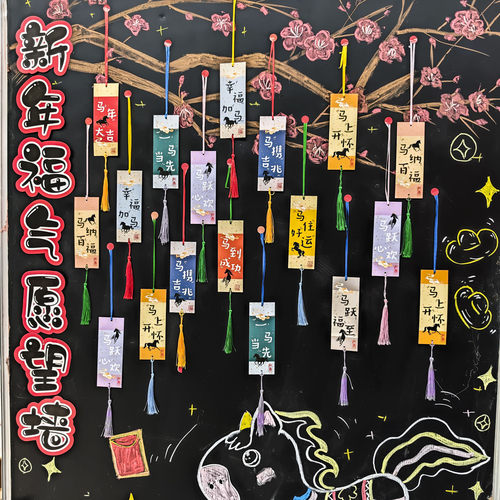 新年福气愿望墙
马年大吉
一马当先
马跃心欢
幸福加马
马携吉兆
马上开怀
马纳百福
马纳百福
幸福加马
马携吉兆
马到成功
马住好运
马跃心欢
马跃心欢
马上开怀
一马当先
马跃福至
马上开怀